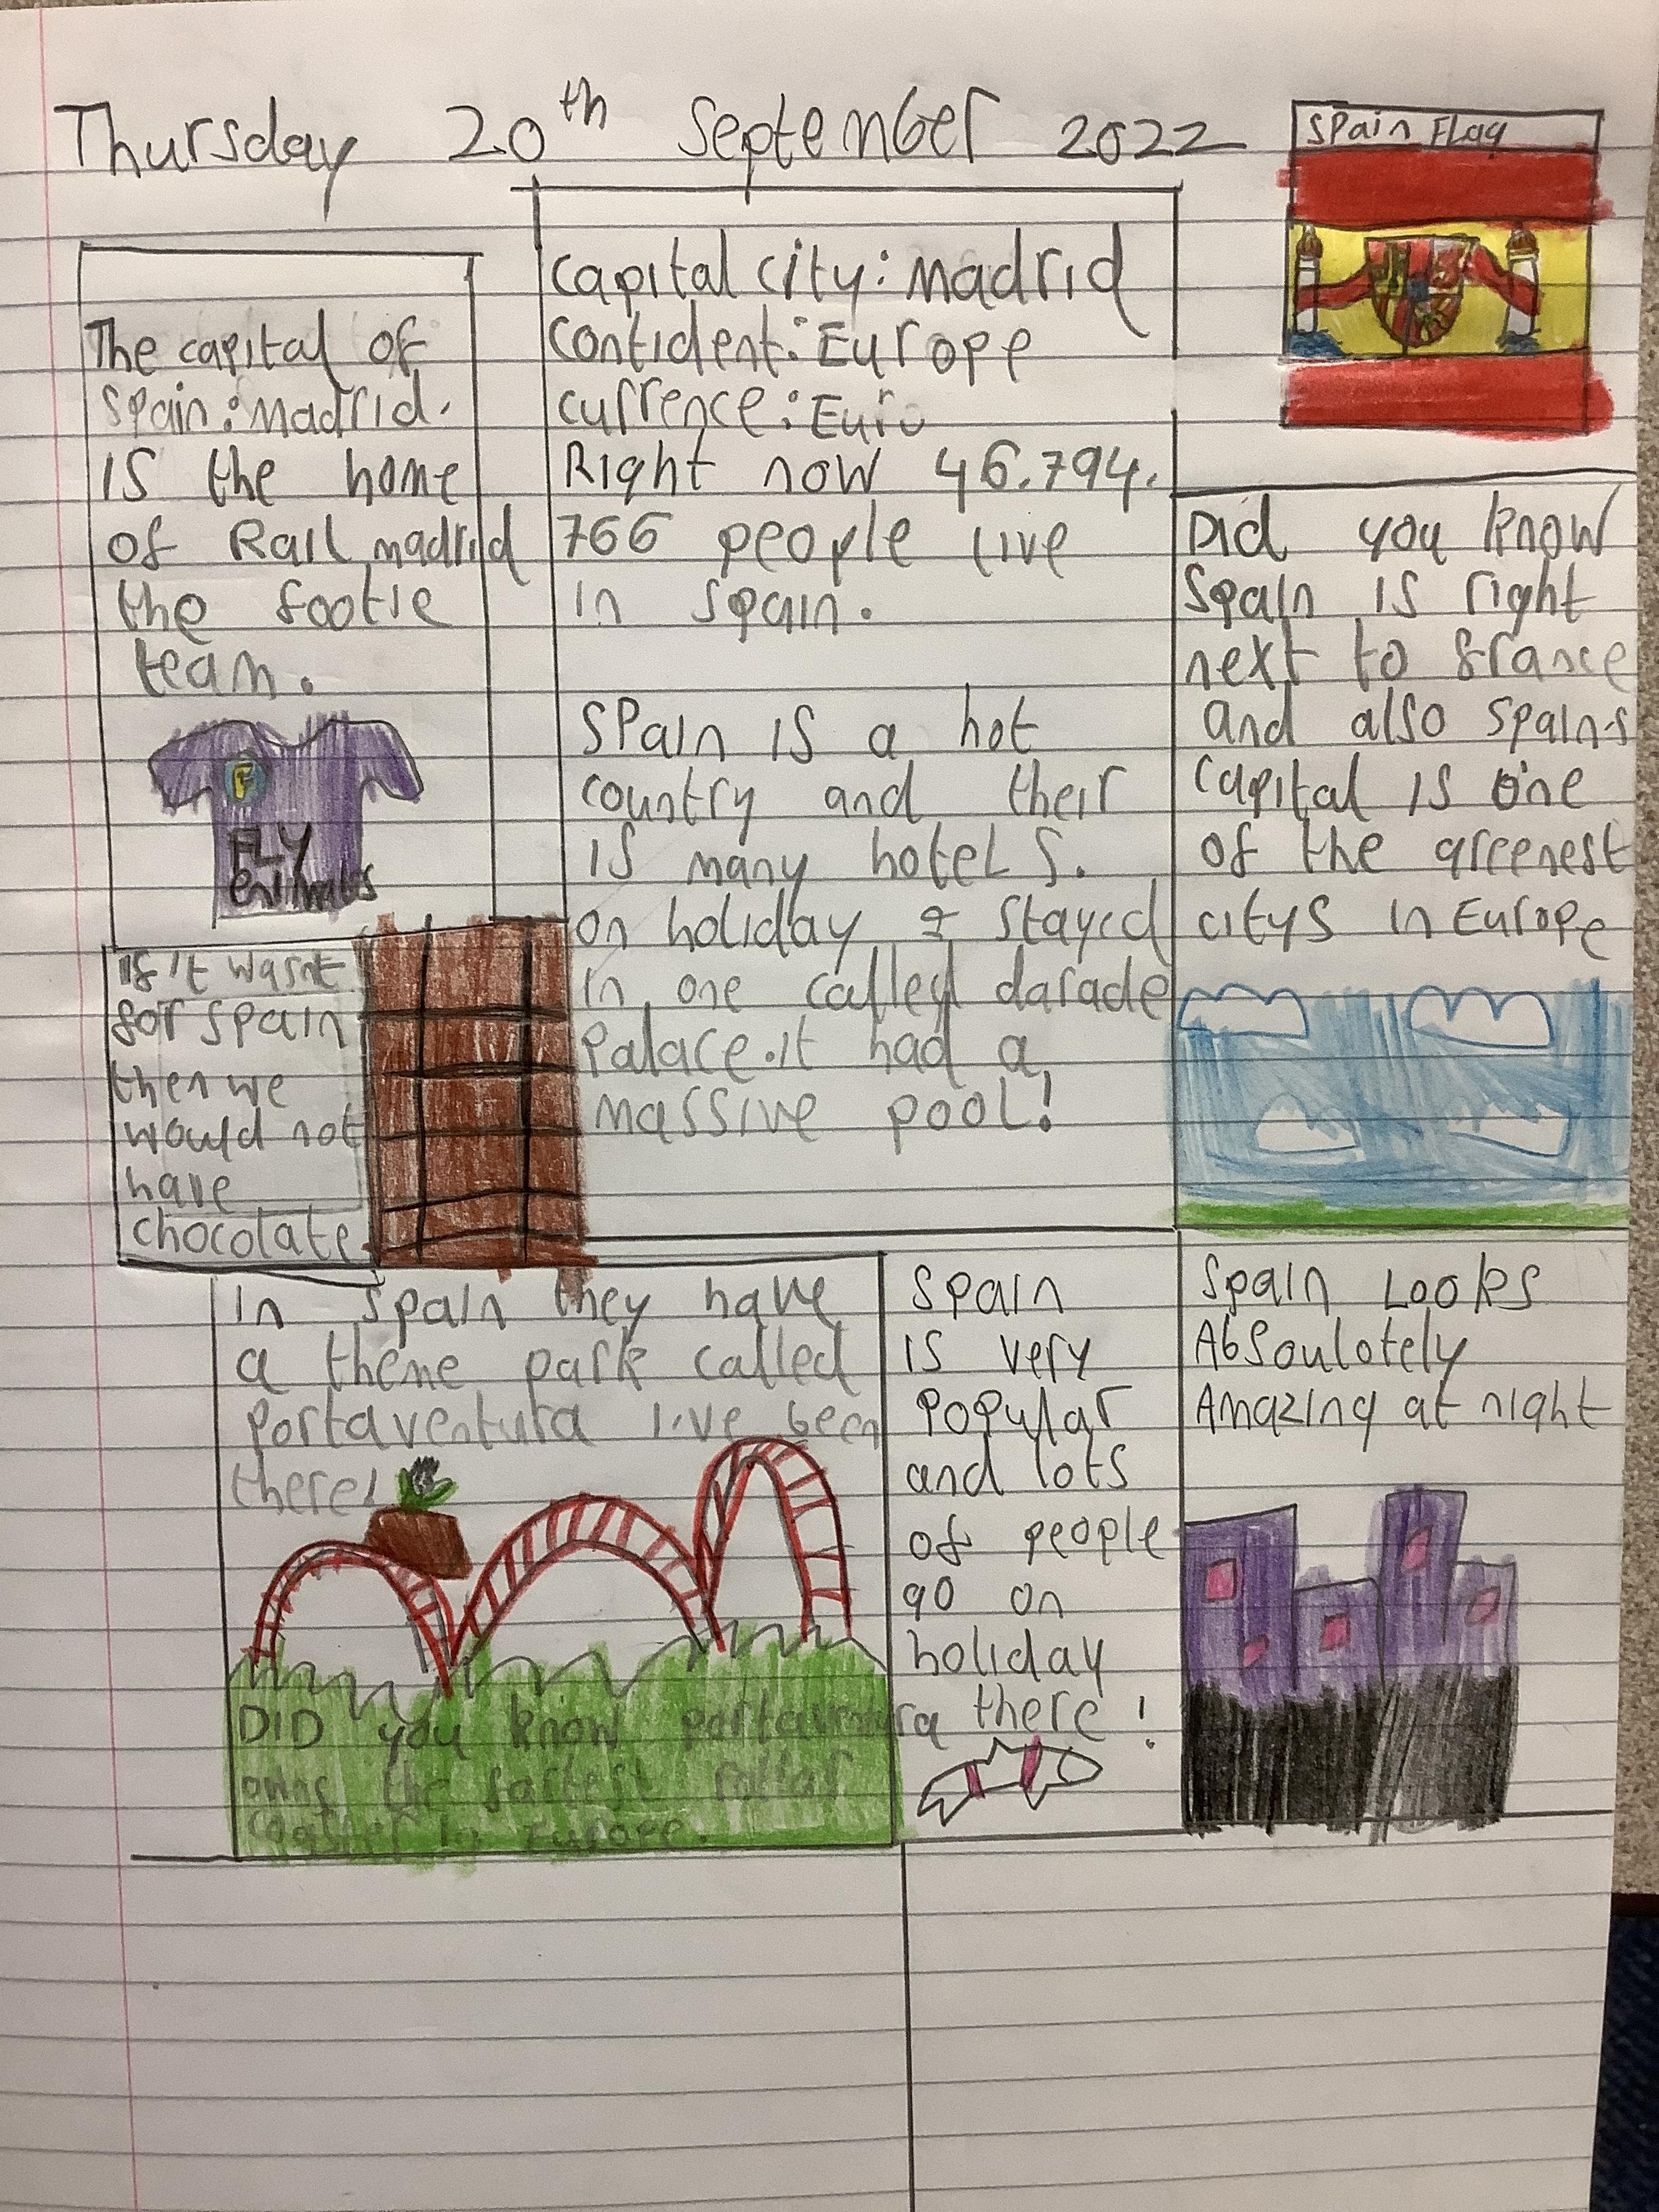 Thursday 20th September 2022
Spain Flag
The capital of
Spain: Madrid.
is the home
of Rail madrid
the footie
team.
F
FLY
emirates
If it wasnt
for spain
then we
would not
have
chocolate
capital city: Madrid
contident: Europe
currence: Euro
Right now 46.794.
766 people live
in spain.
Spain is a hot
country and their
is many hotels.
on holiday I stayed
in one called darade
palace. it had a
massive pool!
Did you know
Spain is right
next to france
and also spain's
capital is one
of the greenest
citys in Europe
In spain they have
a theme park called
portaventura i've been
there!
DID you know portaventura
owns the fastest rollar
coaster in Europe.
Spain
is very
popular
and lots
of people
go on
holiday
there!
Spain Looks
Absoulotely
Amazing at night